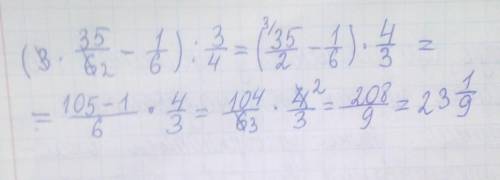 (3 · 35/6 2 − 1/6) : 3/4 = (³⁾35/2 − 1/6) · 4/3 =
= 105−1/6 · 4/3 = 104/6 3 · 4 2/3 = 208/9 = 23 1/9